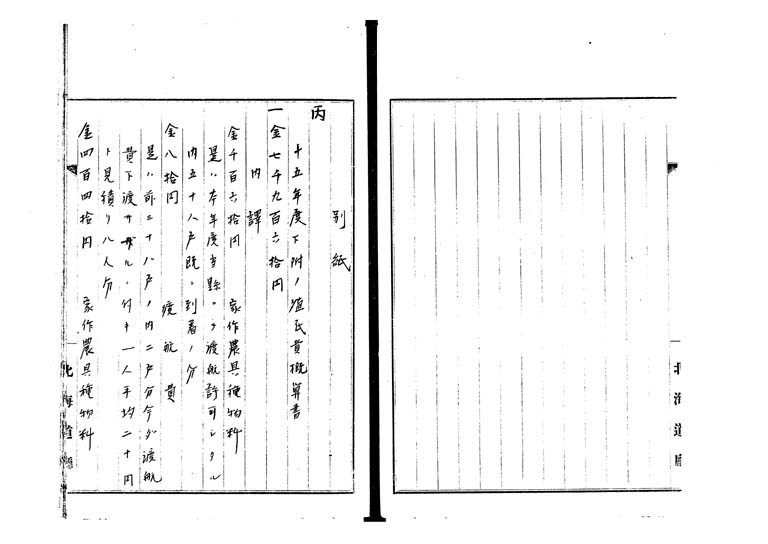 別紙
丙
十五年度下附ノ殖民費概算書
一金七千九百六拾円
内譯
金千百六拾円 家作農具種物料
是ハ本年度当縣ニテ渡航許可シタル
内五十八戸既ニ到着ノ分
金八拾円 渡航費
是ハ前三十八戸ノ内二戸分今ダ渡航
費下渡サザルニ付キ一人平均二十円
ト見積リ八人分
金四百四拾円 家作農具種物料
北海道廳
北海道廳